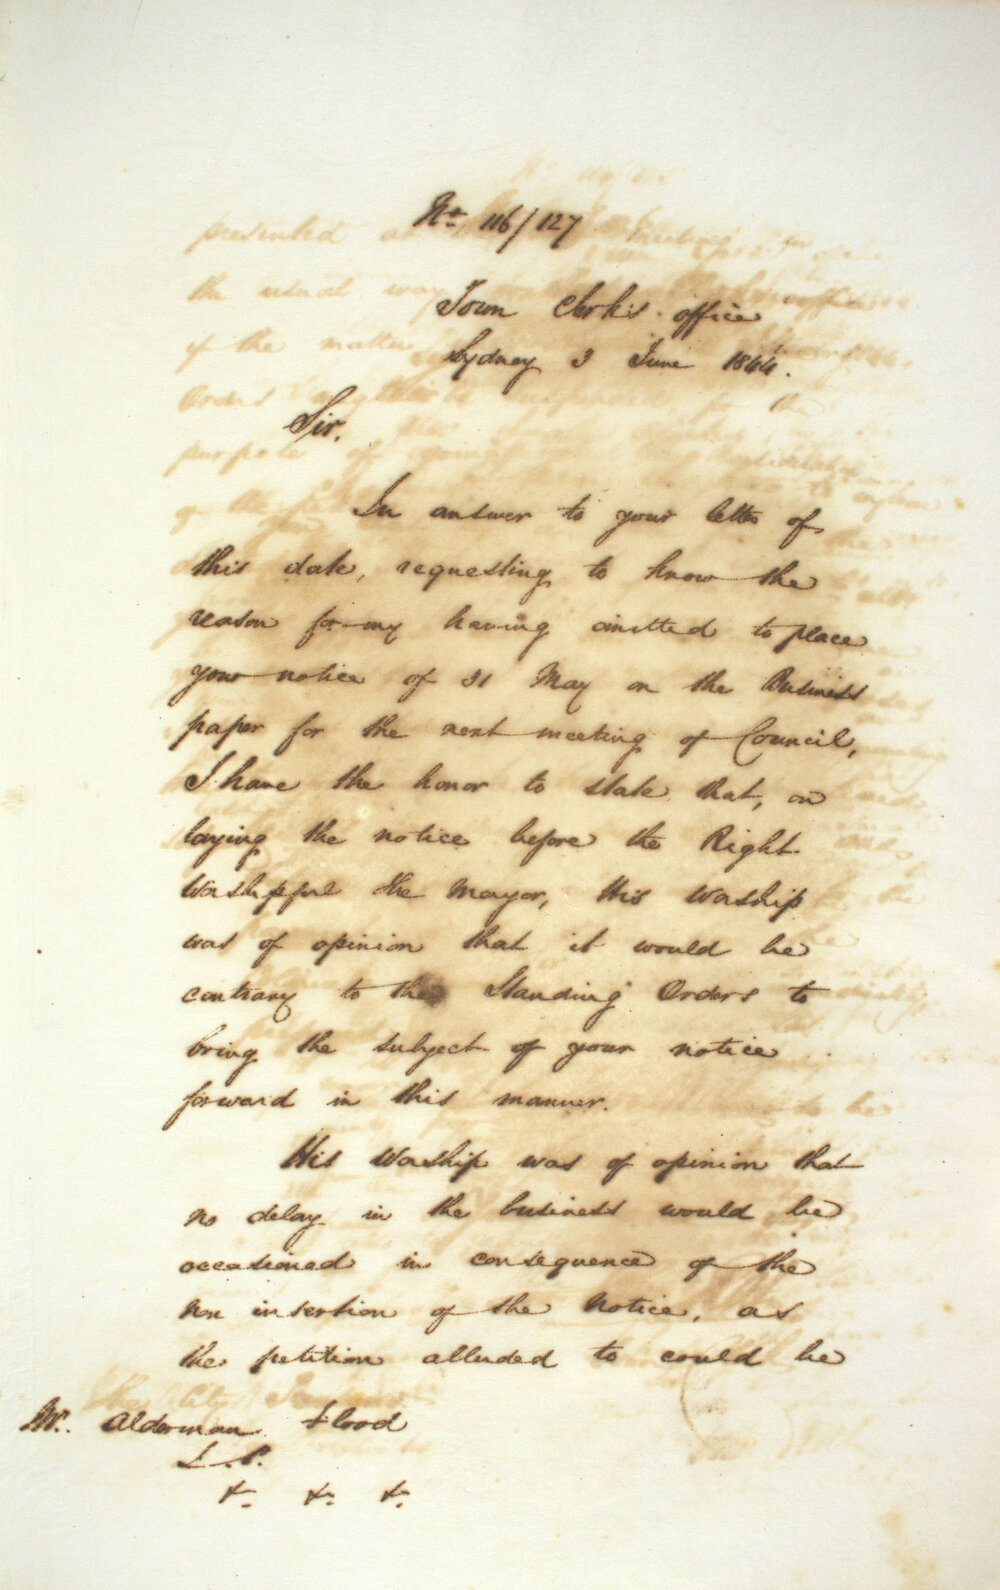 No. 116/127
Town Clerk's office
Sydney 3 June 1844.
Sir,
In answer to your letter of
this date, requesting to know the
reason for my having omitted to place
your notice of 31 May on the Business
paper for the next meeting of Council,
I have the honor to state that, on
laying the notice before the Right
Worshipful the Mayor, His Worship
was of opinion that it would be
contrary to the Standing Orders to
bring the subject of your notice
forward in this manner.
His Worship was of opinion that
no delay in the business would be
occasioned in consequence of the
non insertion of the notice, as
the petition alluded to could be
Mr. Alderman Flood
J.P.
&. &. &.